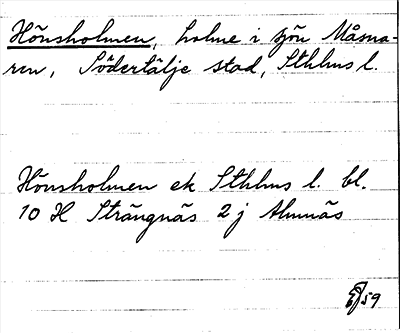 Hönsholmen, holme i sjön Måsna-
ren, Södertälje stad, Sthlms l.
Hönsholmen ek Sthlms l. bl.
10 H Strängnäs 2 j Almnäs
59